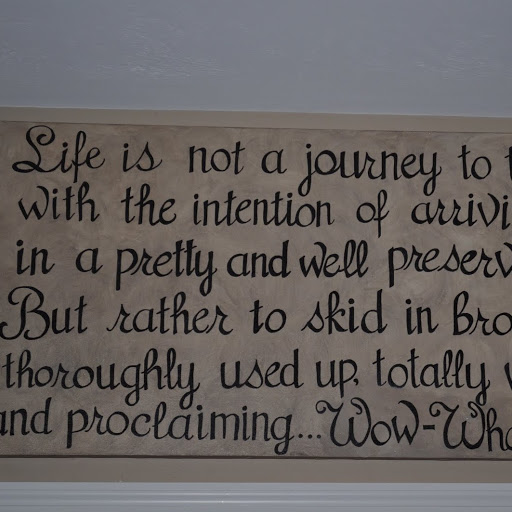 Life is not a journey to t
with the intention of arrivi
in a pretty and well preserv
But rather to skid in Bro
thoroughly used up, totally
and proclaiming...Wow-Wha